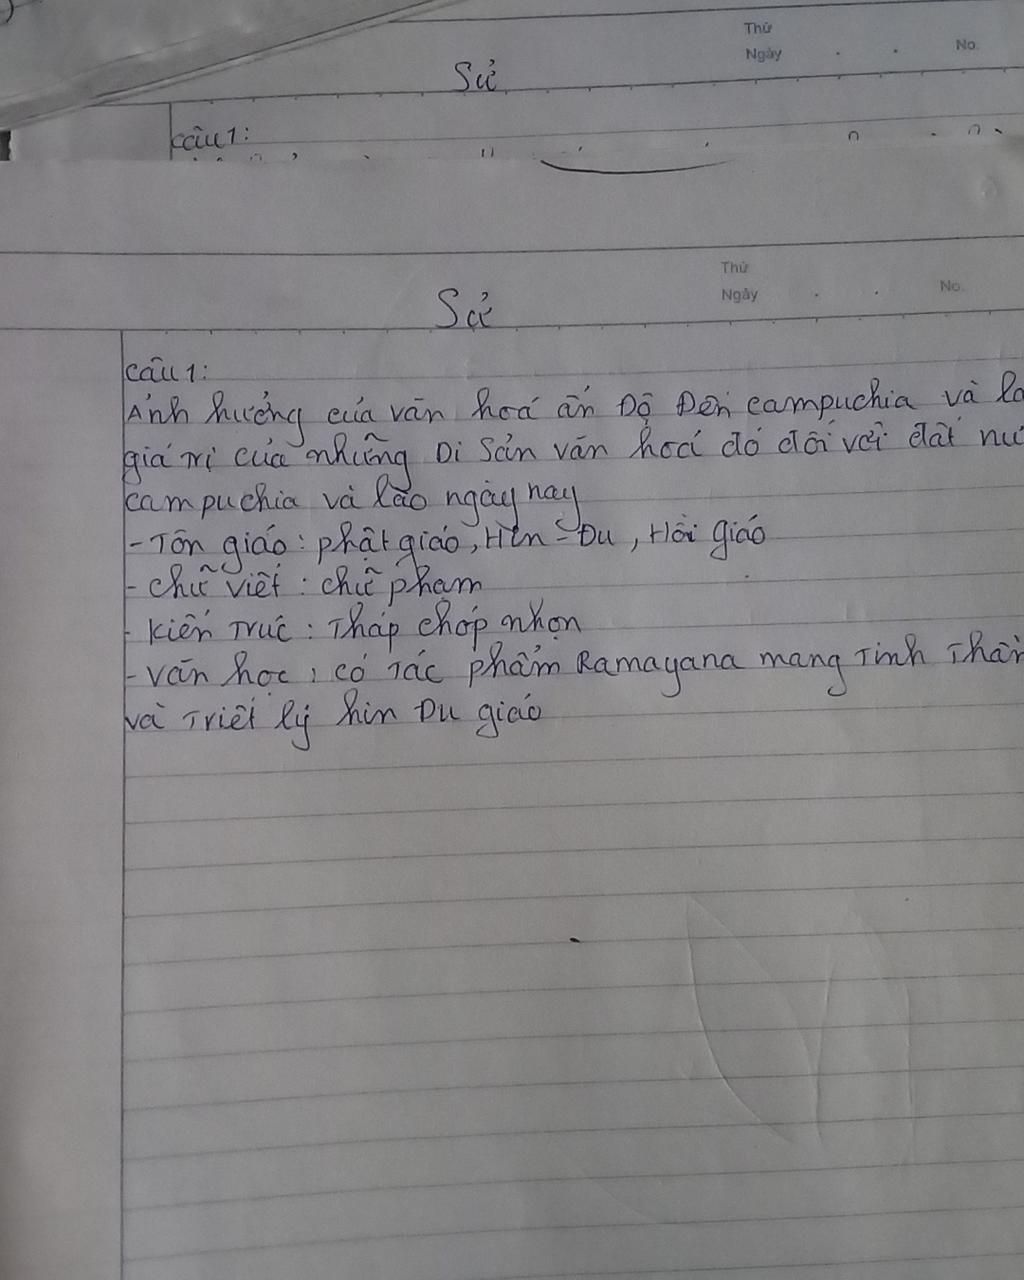 Thứ
Ngày No.
Sử
câu 1:
Thứ
Ngày No.
Sử
câu 1:
Ảnh hưởng của văn hoá ấn Độ Đến campuchia và
giá trị của những Di sản văn hoá đó đối với đất
campuchia và lào ngày nay
- Tôn giáo: phật giáo, Hin-Đu, Hồi giáo
- chữ viết: chữ phạm
- kiến Trúc: Tháp chóp nhọn
- văn học: có Tác phẩm Ramayana mang Tinh
và Triết lý hin Du giáo